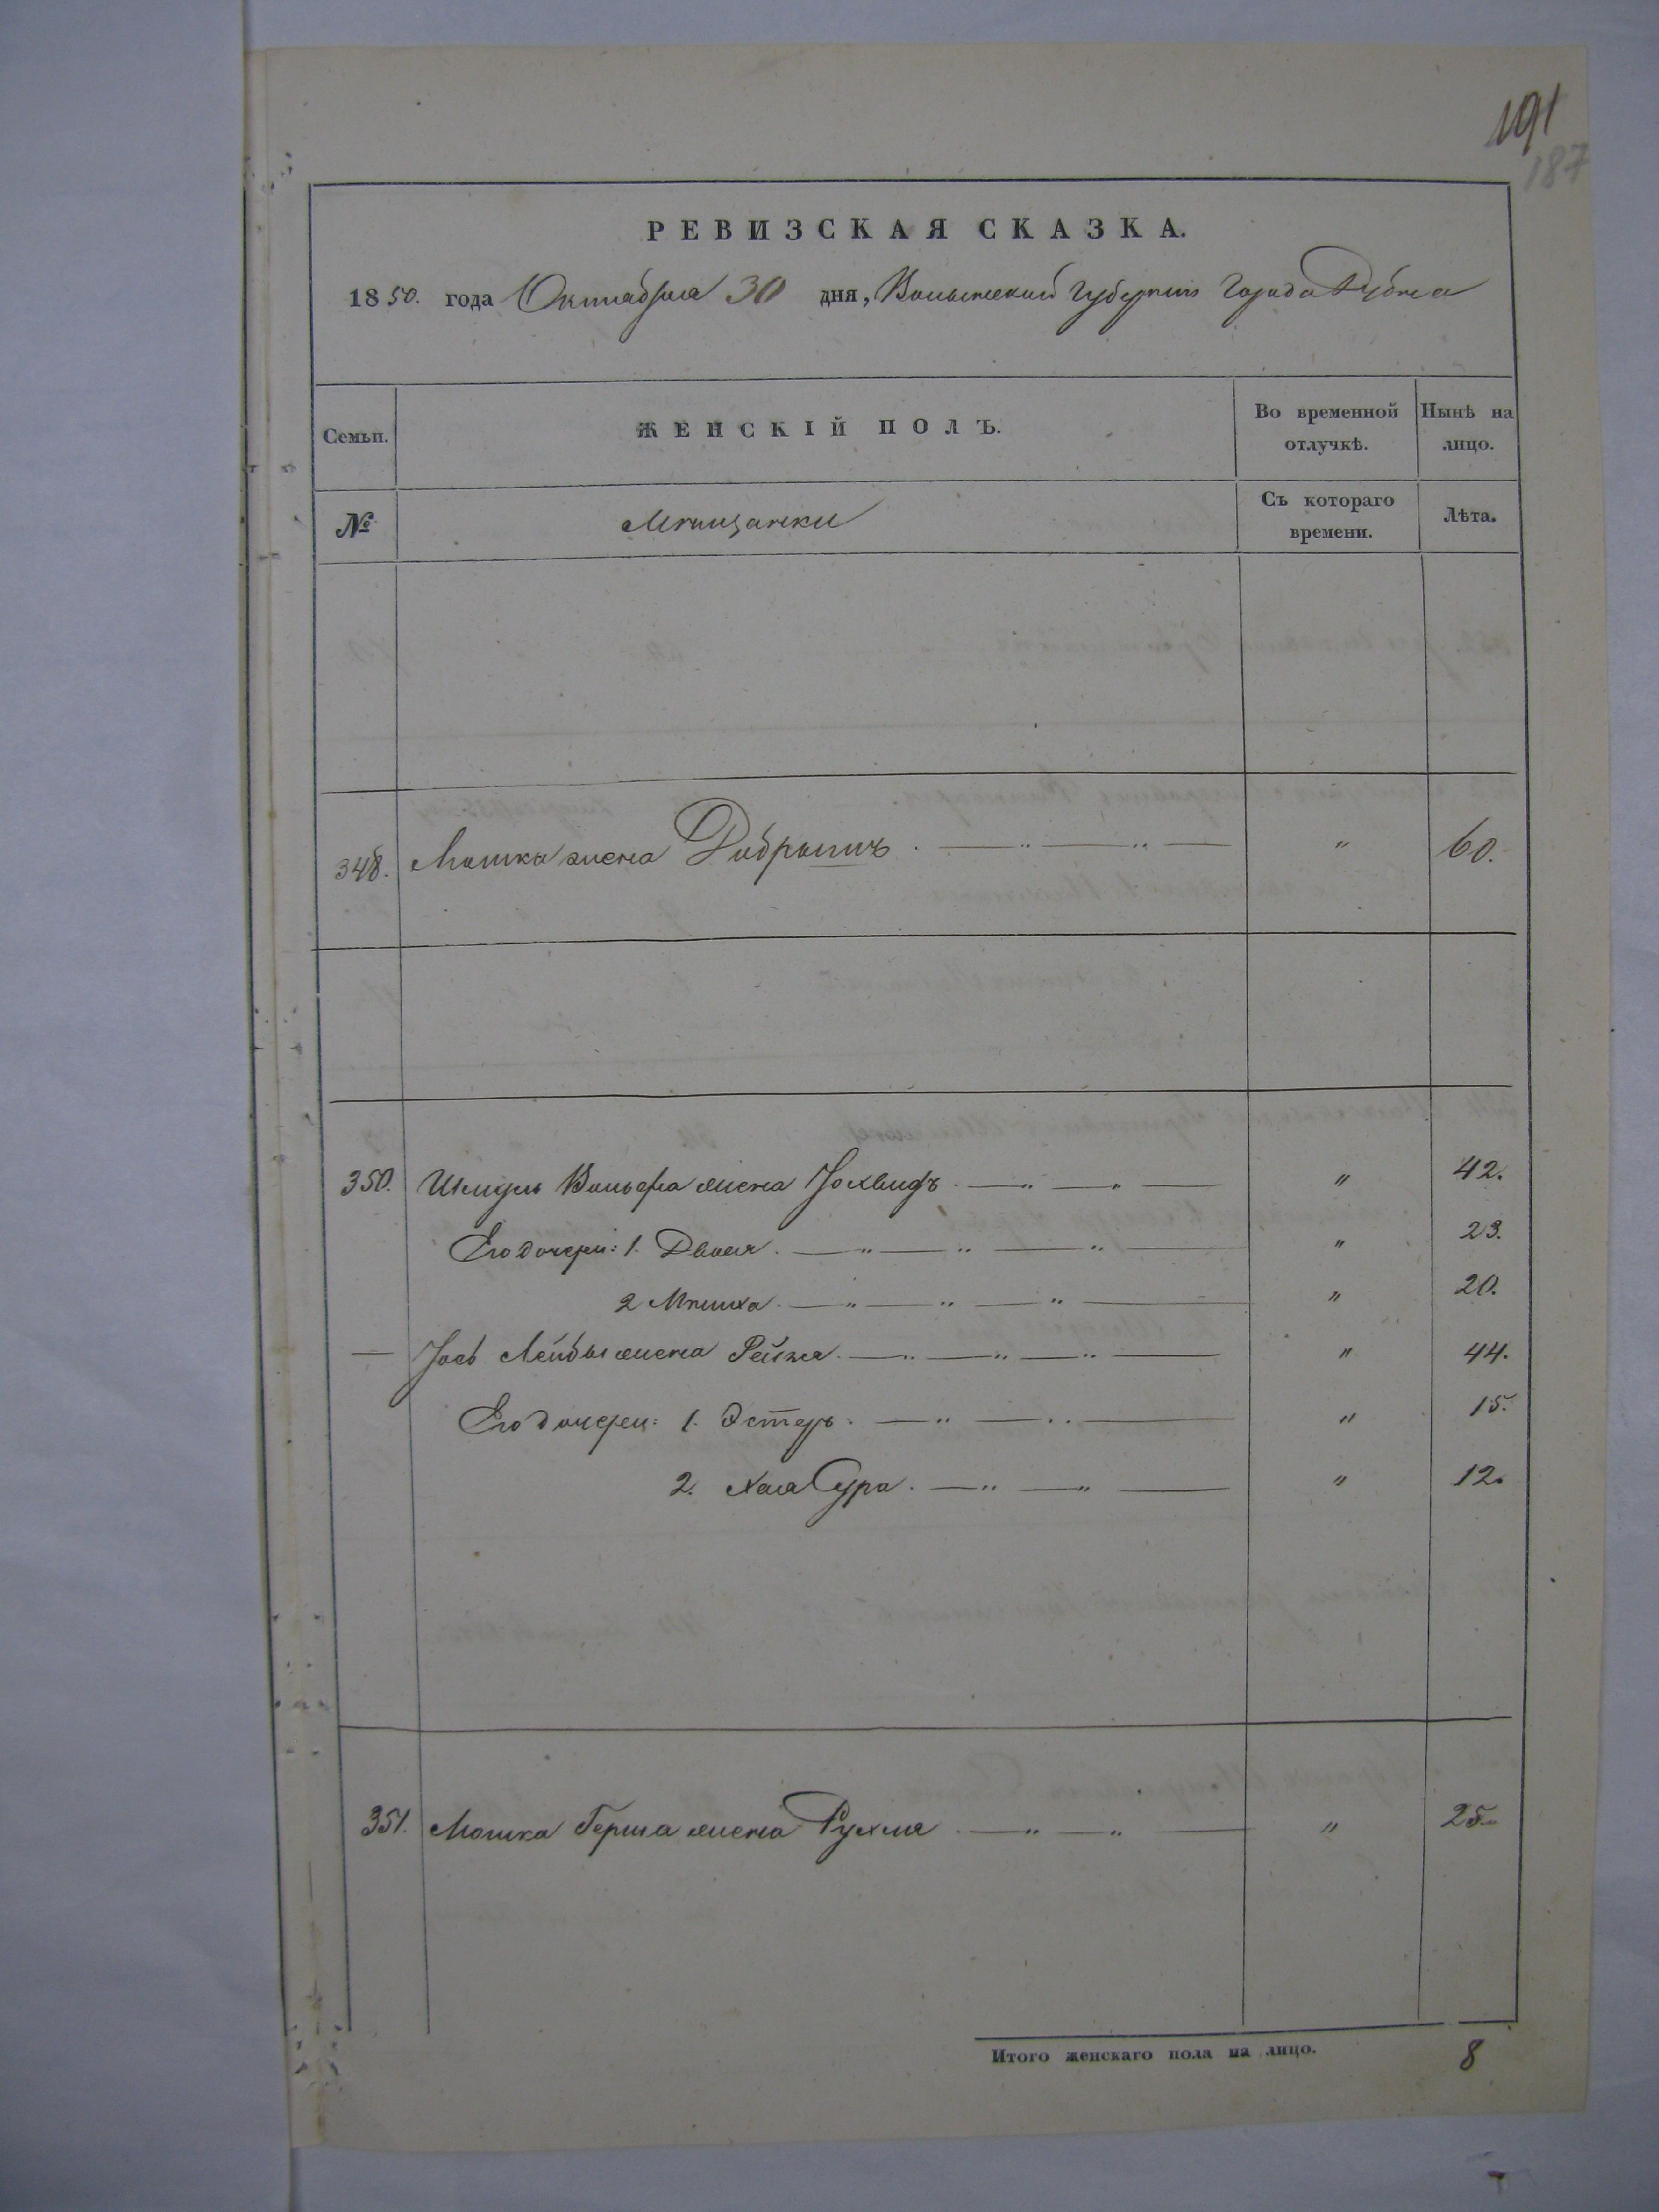 191
187
РЕВИЗСКАЯ СКАЗКА.
1850. года Октября 30 дня, Волынской Губернии Города Дубна
Семьи. ЖЕНСКІЙ ПОЛЪ. Во временной отлучкѣ. Нынѣ на лицо.
№ Мѣщанки Съ котораго времени. Лѣта.
348. Мошка жена Добрышъ . — " — " — " 60.
350. Шмуль Вольфа жена Іохвидъ . — " — " — " 42.
Его дочери: 1. Двося . — " — " — " — " 23.
2 Мѣиха . — " — " — " — " 20.
— Іось Лейбы жена Рейзя . — " — " — " — " 44.
Его дочери: 1. Эстеръ . — " — " — " 15.
2. Хая Сура . — " — " — " 12.
351. Мошка Герша жена Рухля . — " — " — " 25.
Итого женскаго пола на лицо. 8